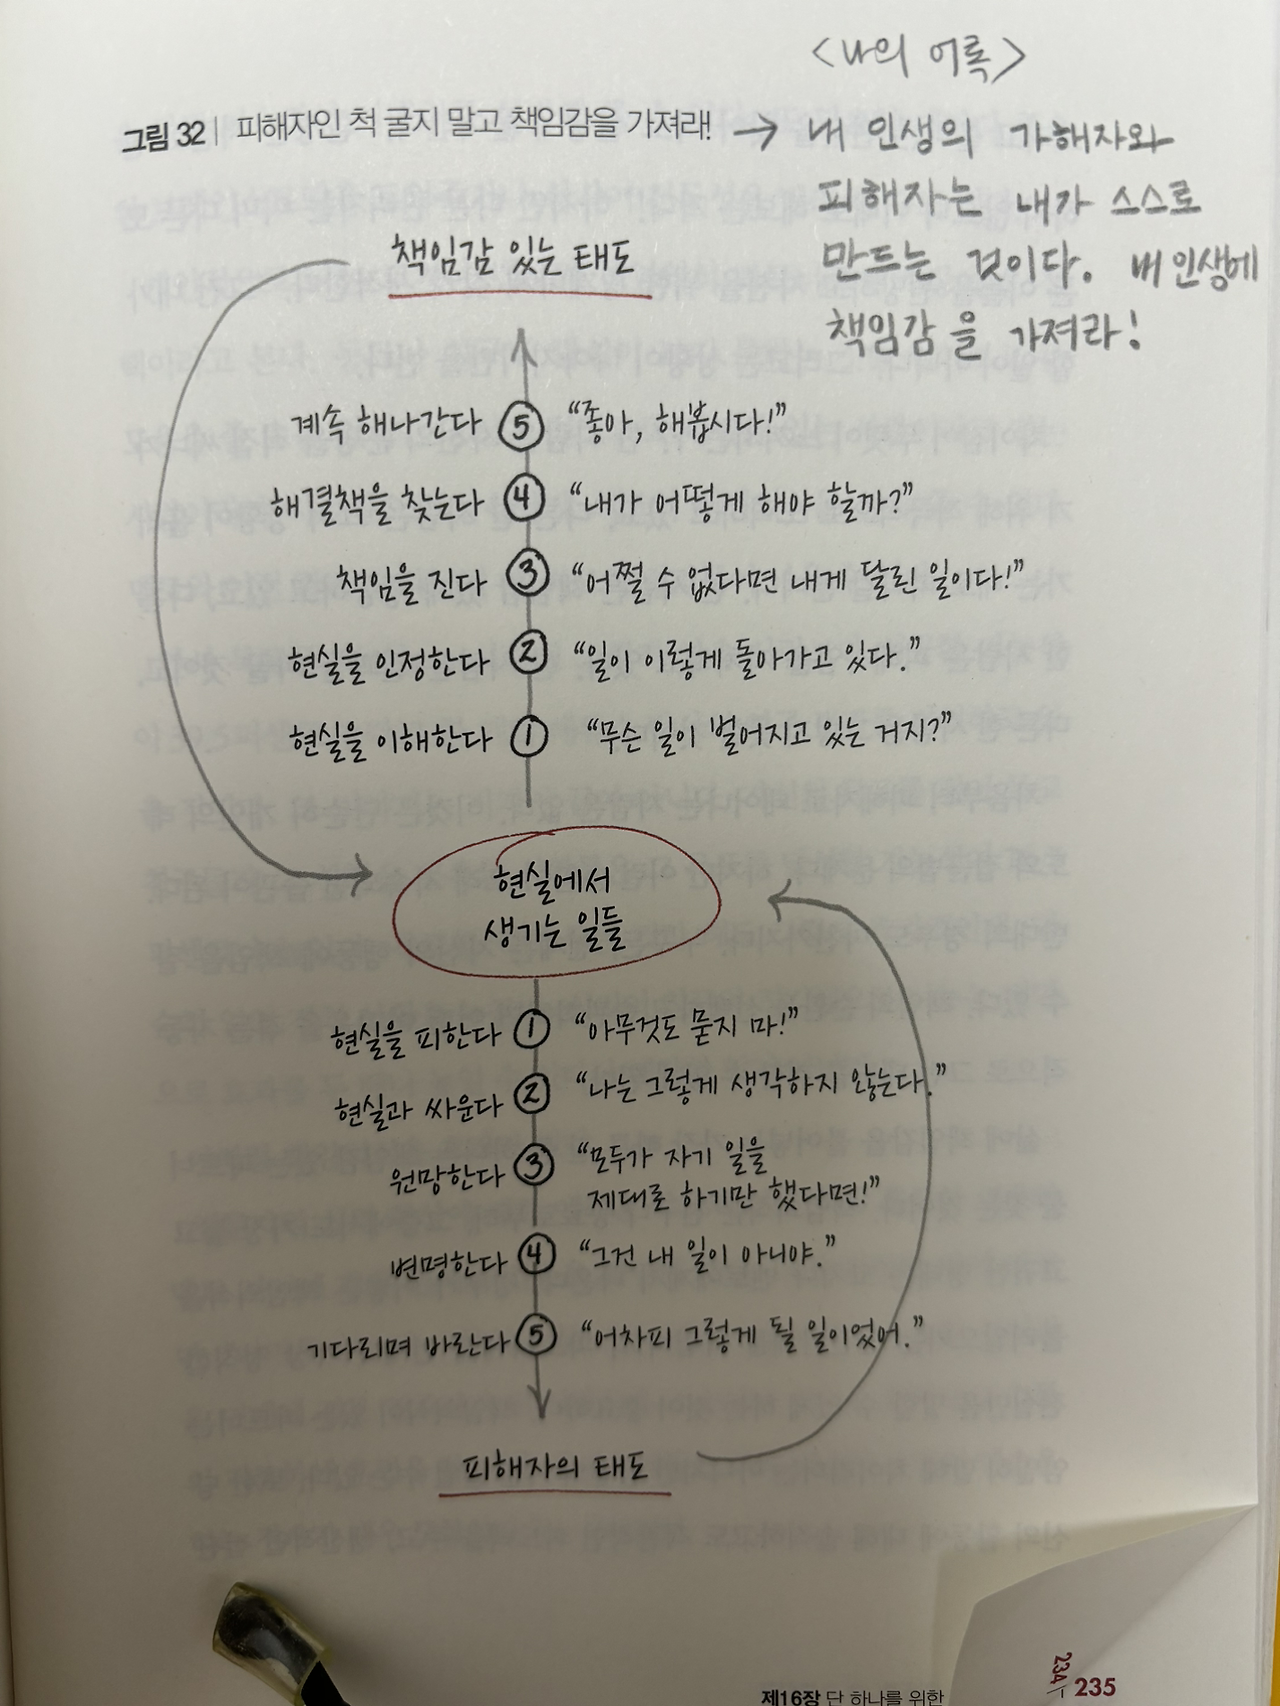 <나의 어록>
그림 32 | 피해자인 척 굴지 말고 책임감을 가져라! → 내 인생의 가해자와
피해자는 내가 스스로
만드는 것이다. 내 인생에
책임감을 가져라!
책임감 있는 태도
계속 해나간다 ⑤ “좋아, 해봅시다!”
해결책을 찾는다 ④ “내가 어떻게 해야 할까?”
책임을 진다 ③ “어쩔 수 없다면 내게 달린 일이다!”
현실을 인정한다 ② “일이 이렇게 돌아가고 있다.”
현실을 이해한다 ① “무슨 일이 벌어지고 있는 거지?”
현실에서
생기는 일들
현실을 피한다 ① “아무것도 묻지 마!”
현실과 싸운다 ② “나는 그렇게 생각하지 않는다.”
원망한다 ③ “모두가 자기 일을
제대로 하기만 했다면!”
변명한다 ④ “그건 내 일이 아니야.”
기다리며 바란다 ⑤ “어차피 그렇게 될 일이었어.”
피해자의 태도
제16장 단 하나를 위한
234 235